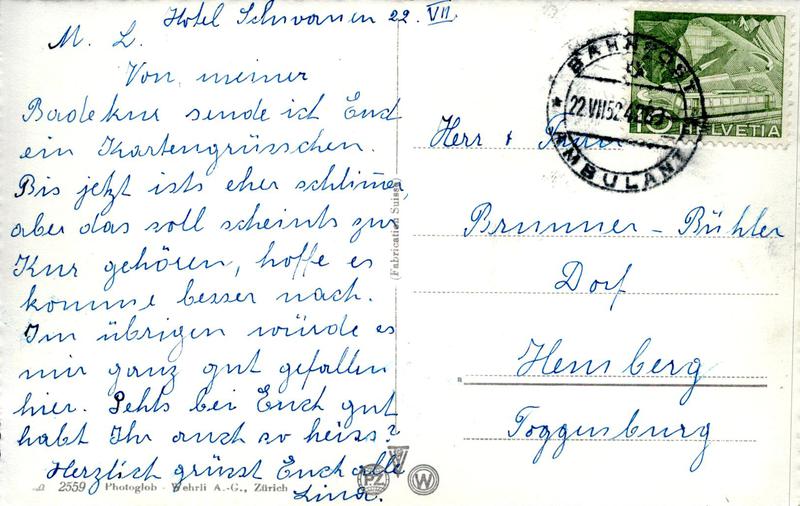 Hotel Schwanen 22. VII.
M. L.
Von meiner
Badekur sende ich Euch
ein Kartengrüsschen.
Bis jetzt ists eher schlimmer,
aber das soll scheints zur
Kur gehören, hoffe es
komme besser nach.
Im übrigen würde es
mir ganz gut gefallen
hier. Gehts bei Euch gut
habt Ihr auch so heiss?
Herzlich grüsst Euch alle
Lina.
2559 Photoglob - Wehrli A.-G., Zürich
(Fabrication Suisse)
PZ
W
BAHNPOST
22.VII.52
AMBULANT
10 HELVETIA
Herr & Frau
Brunner - Bühler
Dorf
Hemberg
Toggenburg